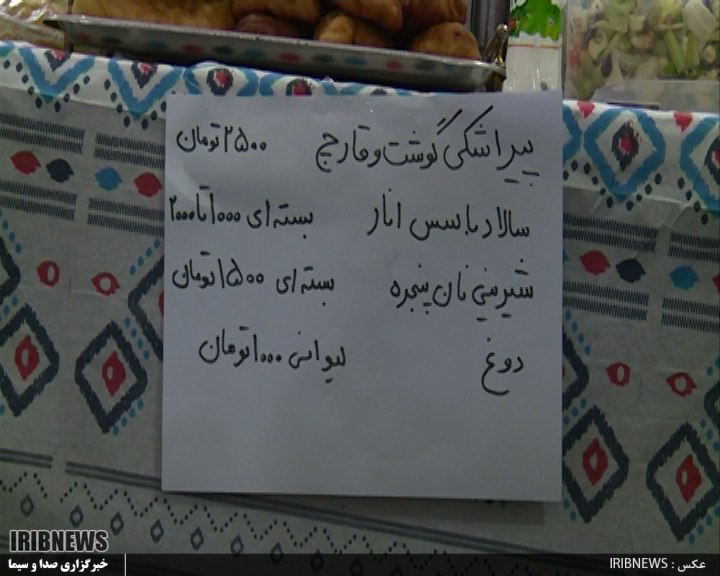 پیراشکی گوشت و قارچ ۲۵۰۰ تومان
سالاد باسس انار بسته ای ۱۰۰۰ تا ۲۰۰۰
شیرینی نان پنجره بسته ای ۱۵۰۰ تومان
دوغ لیوانی ۱۰۰۰ تومان
IRIBNEWS
خبرگزاری صدا و سیما
عکس : IRIBNEWS